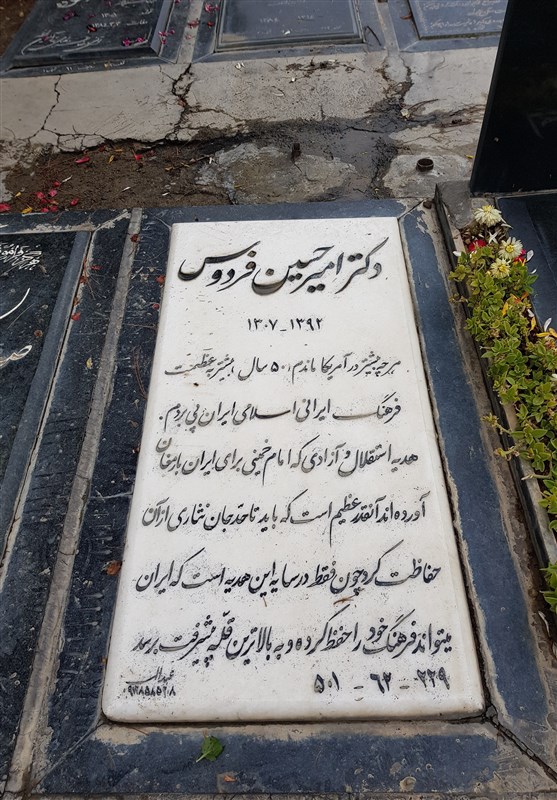 دکتر امیرحسین فردوس
۱۳۰۷ - ۱۳۹۲
هر چه بیشتر در آمریکا ماندم، ۵۰ سال، بیشتر به عظمت
فرهنگ ایرانی اسلامی ایران پی بردم.
هدیه استقلال و آزادی که امام خمینی برای ایران بارمغان
آورده اند آنقدر عظیم است که باید تا حد جان نثاری از آن
حفاظت کرد چون فقط در سایه این هدیه است که ایران
میتواند فرهنگ خود را حفظ کرده و به بالاترین قله پیشرفت برسد
۵۰۱ - ۶۲ - ۲۲۹